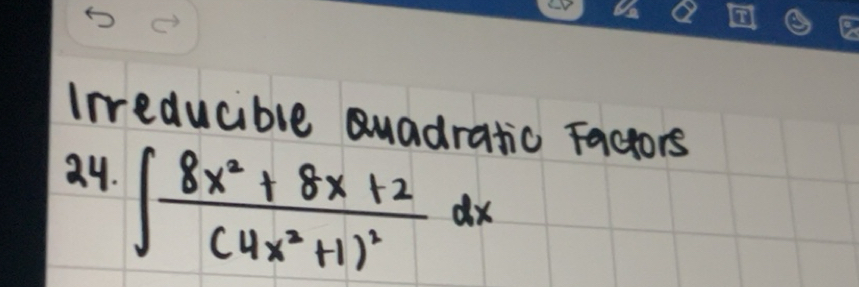 Irreducible Quadratic Factors
24. ∫ (8x² + 8x + 2)/((4x² + 1)²) dx